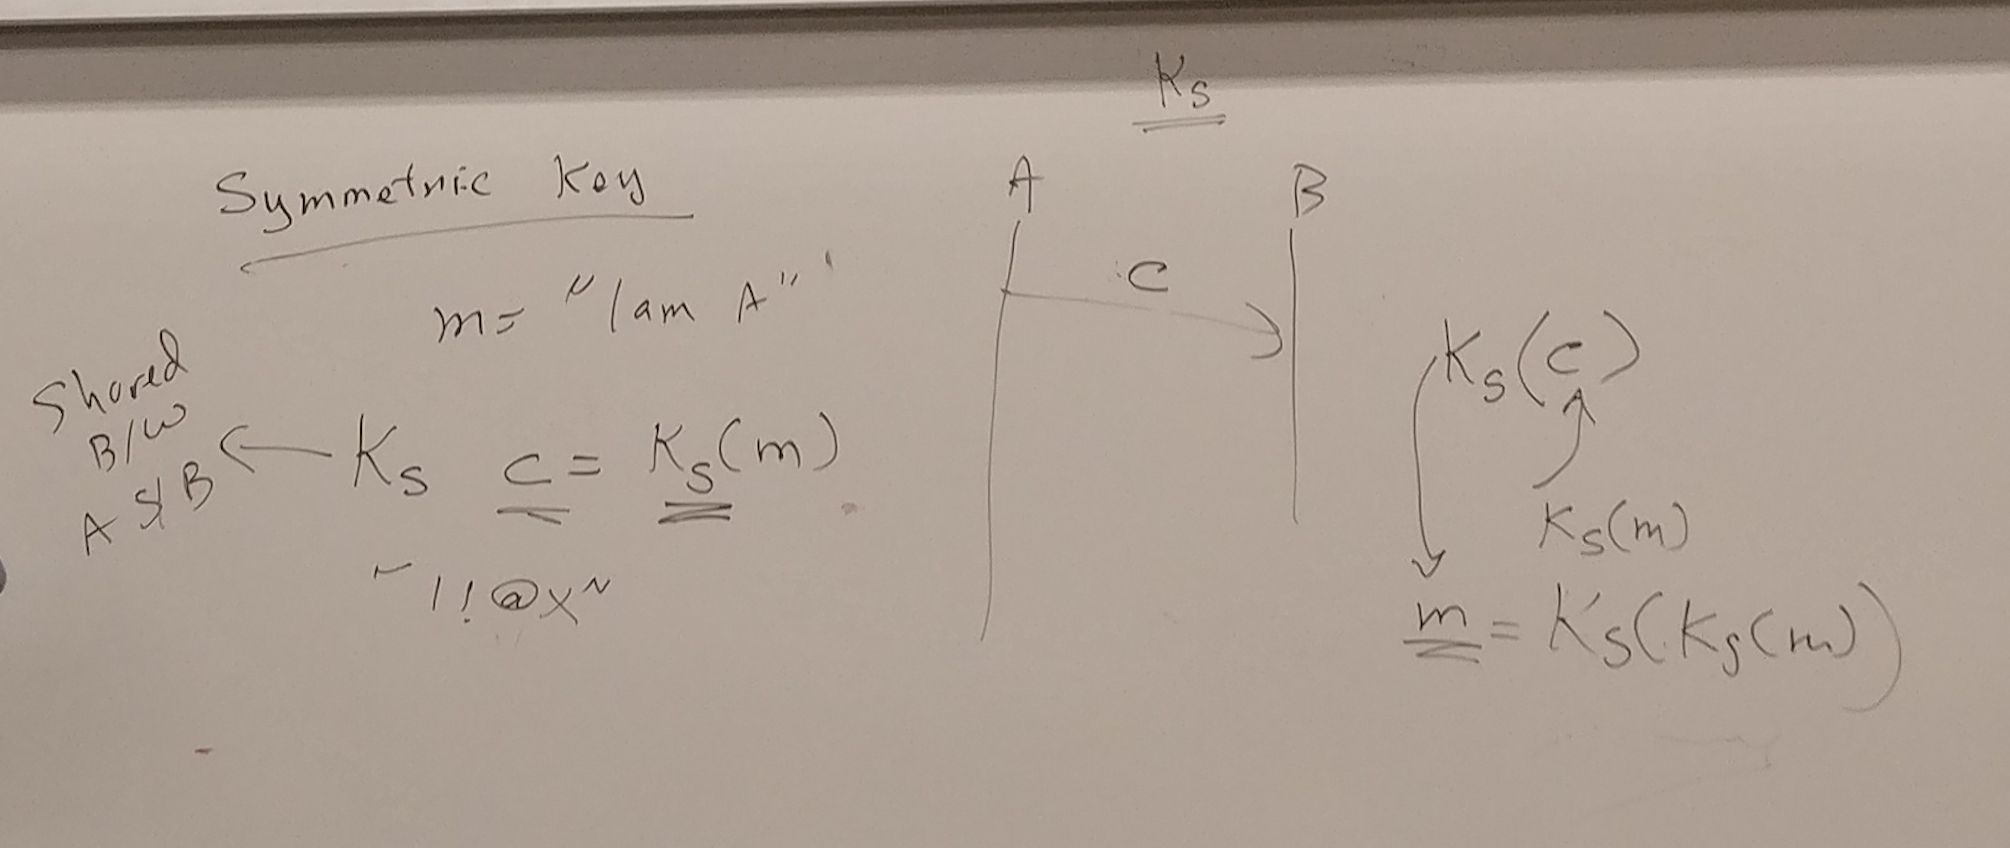 Ks
Symmetric Key
A B
m= "I am A"
C
Shared
B/W
A & B
Ks c = Ks(m)
"1!@x"
Ks(c)
Ks(m)
m = Ks(Ks(m))